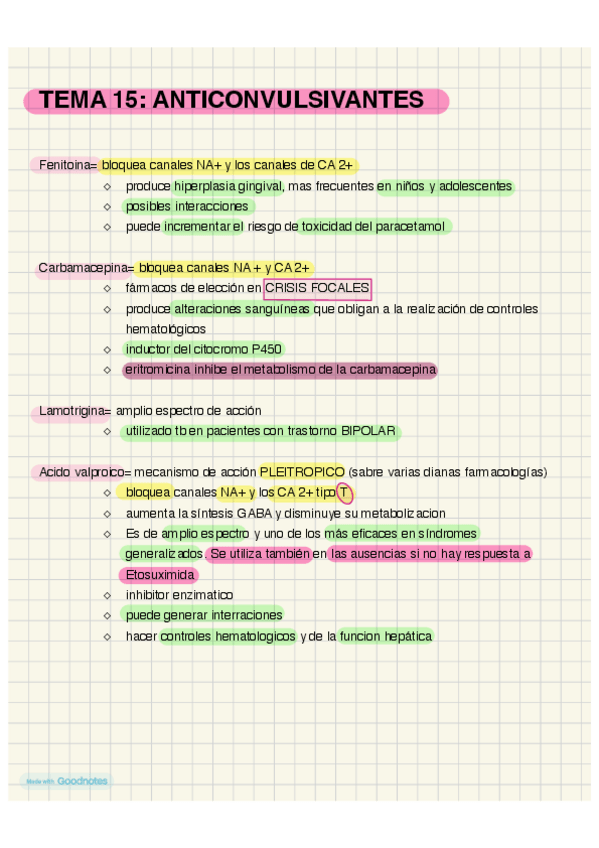 TEMA 15: ANTICONVULSIVANTES
Fenitoina= bloquea canales NA+ y los canales de CA 2+
◇ produce hiperplasia gingival, mas frecuentes en niños y adolescentes
◇ posibles interacciones
◇ puede incrementar el riesgo de toxicidad del paracetamol
Carbamacepina= bloquea canales NA + y CA 2+
◇ fármacos de elección en CRISIS FOCALES
◇ produce alteraciones sanguíneas que obligan a la realización de controles
hematológicos
◇ inductor del citocromo P450
◇ eritromicina inhibe el metabolismo de la carbamacepina
Lamotrigina= amplio espectro de acción
◇ utilizado tb en pacientes con trastorno BIPOLAR
Acido valproico= mecanismo de acción PLEITROPICO (sabre varias dianas farmacologías)
◇ bloquea canales NA+ y los CA 2+ tipo T
◇ aumenta la síntesis GABA y disminuye su metabolizacion
◇ Es de amplio espectro y uno de los más eficaces en síndromes
generalizados. Se utiliza también en las ausencias si no hay respuesta a
Etosuximida
◇ inhibitor enzimatico
◇ puede generar interraciones
◇ hacer controles hematologicos y de la funcion hepática
Made with Goodnotes